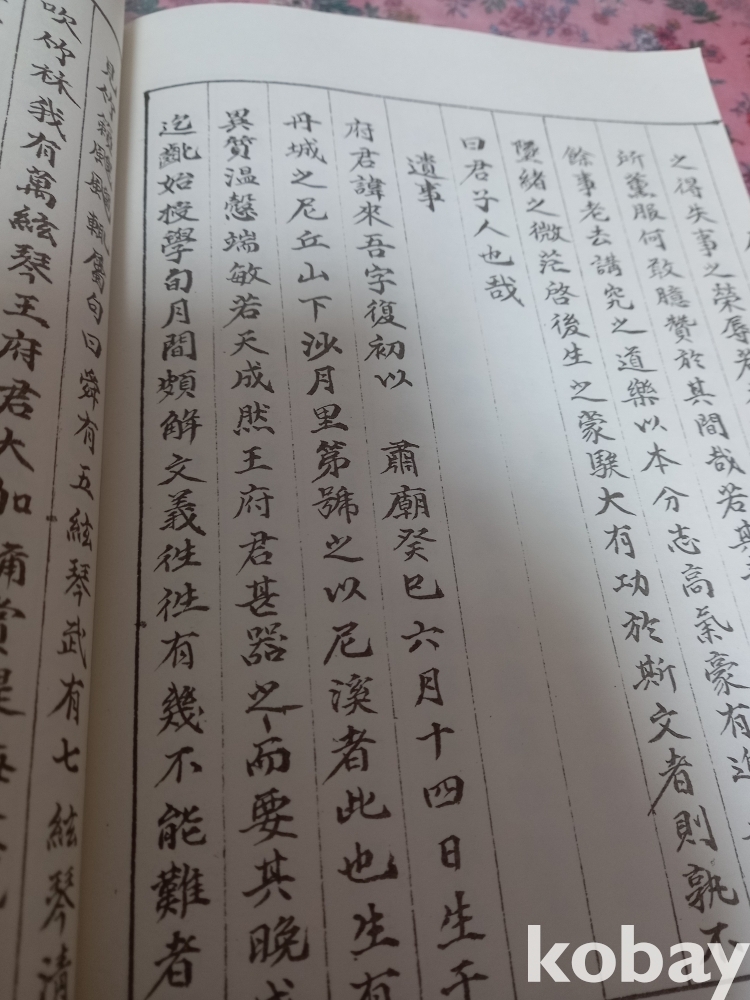 之得失事之榮辱若
所薰服何敢臆贊於其間哉若
餘事老去講究之道樂以本分志高氣豪有
墜緒之微茫啓後生之蒙騃大有功於斯文者則孰不
曰君子人也哉
遺事
府君諱來吾字復初以 肅廟癸巳六月十四日生于
丹城之尼丘山下沙月里第號之以尼溪者此也生有
異質温慤端敏若天成然王府君甚器之而要其晩
迄齔始授學旬月間頗解文義徃徃有幾不能難者
屬句曰舜有五絃琴武有七絃琴清
吹竹林我有萬絃琴王府君大加
kobay